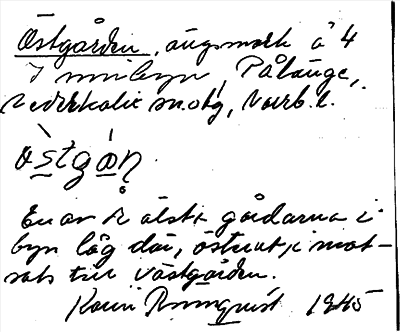 Östgården, ängsmark å 4
I minibyn, Pålänge,
Nederkalix sn. o tg, Norrb. l.
östgån
En av de älsta gårdarna i
byn låg där, österut, i mot-
sats till västgården.
Karin Rönnquist 1945